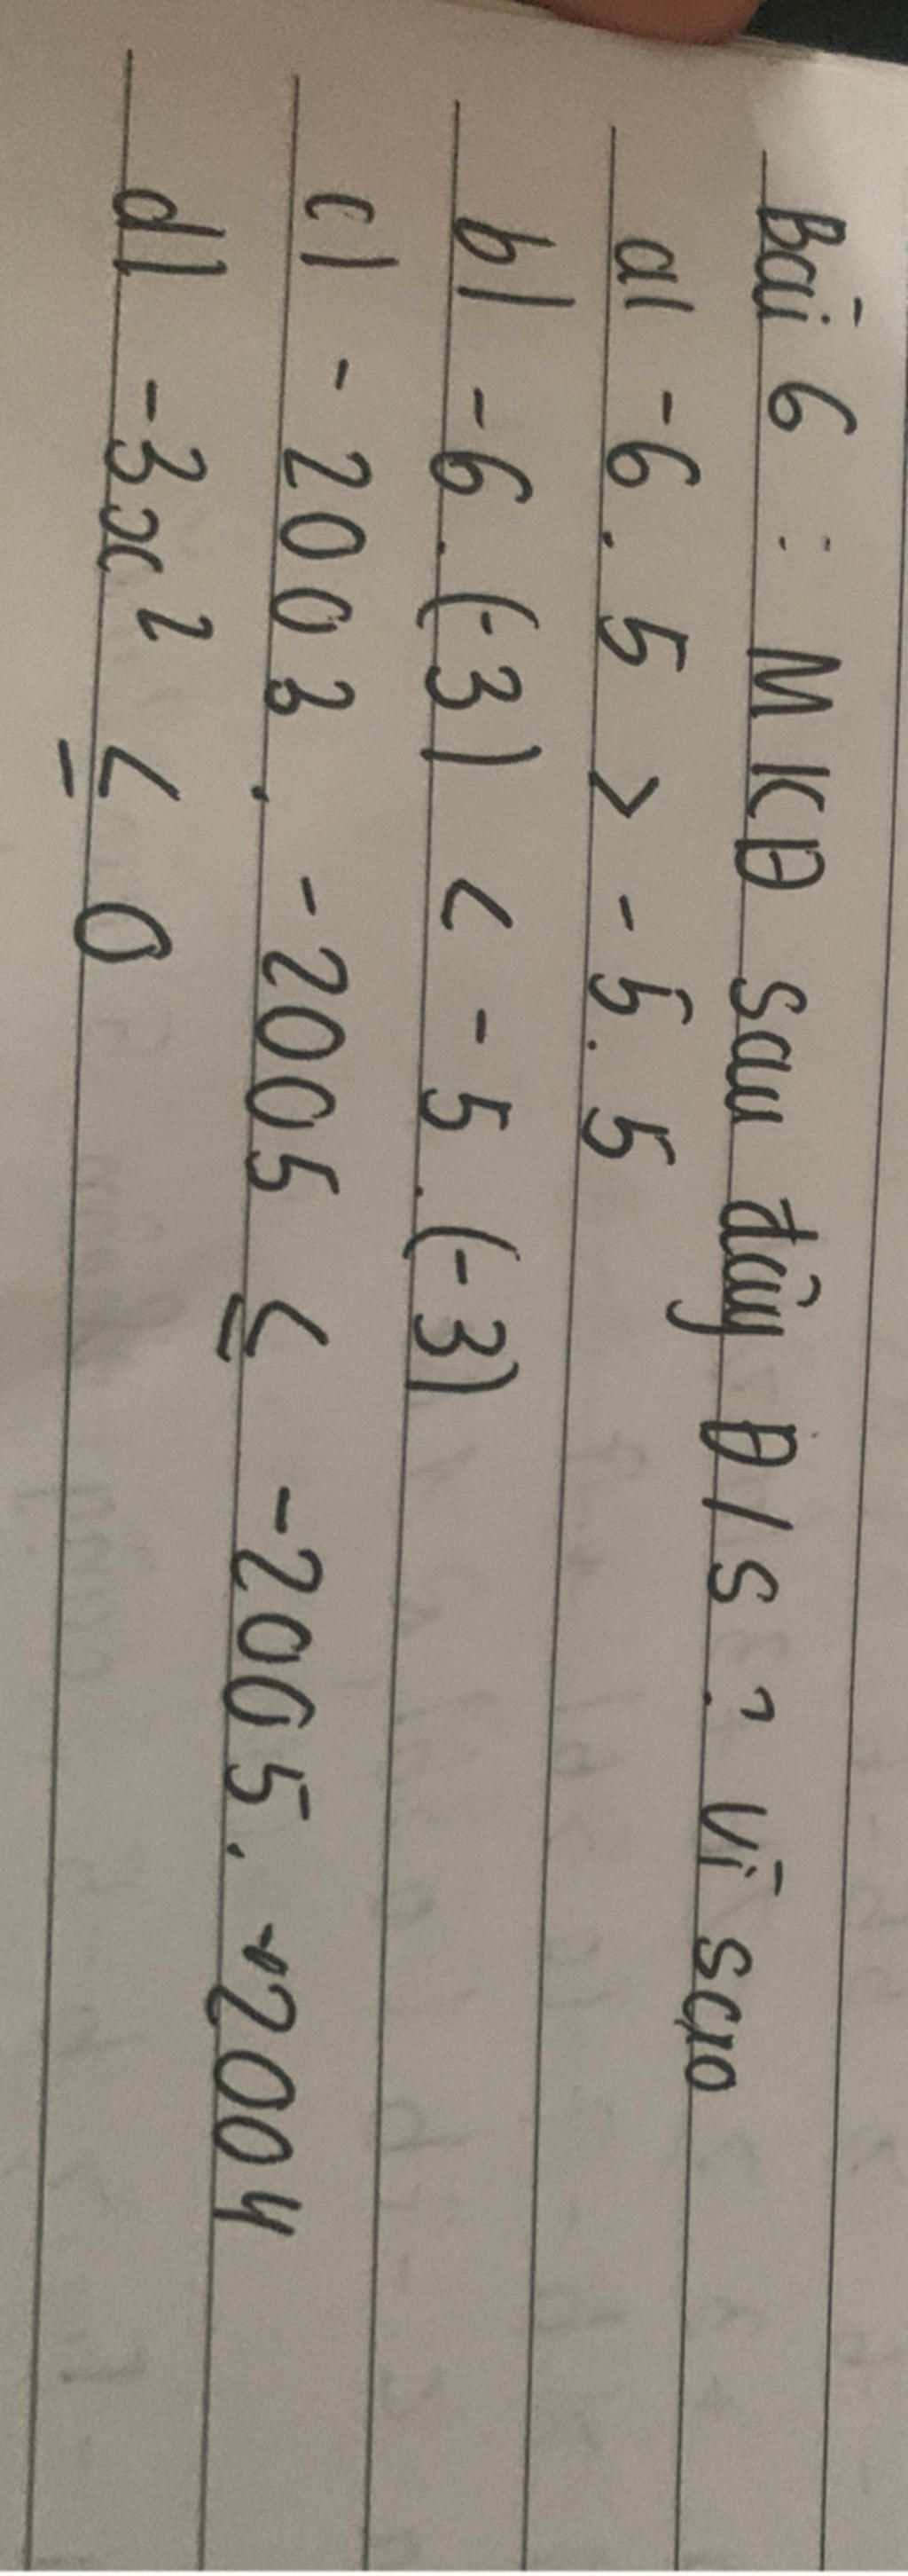 Bài 6 : MKĐ sau đây Đ/S? Vì sao
a) -6. 5 > -5. 5
b) -6. (-3) < -5. (-3)
c) -2003. -2005 ≤ -2005. 2004
d) -3x² ≤ 0